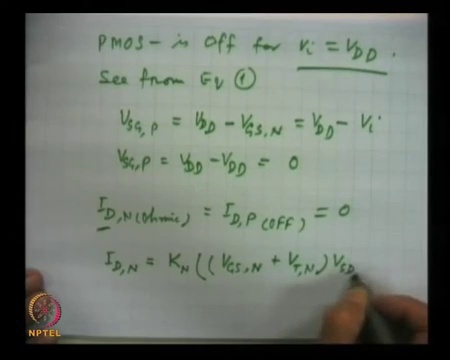 PMOS - is Off for Vi = VDD.
See from Eq ①
VSG,P = VDD - VGS,N = VDD - Vi
VSG,P = VDD - VDD = 0
ID,N (Ohmic) = ID,P (OFF) = 0
ID,N = KN ((VGS,N + VT,N) VSD
NPTEL